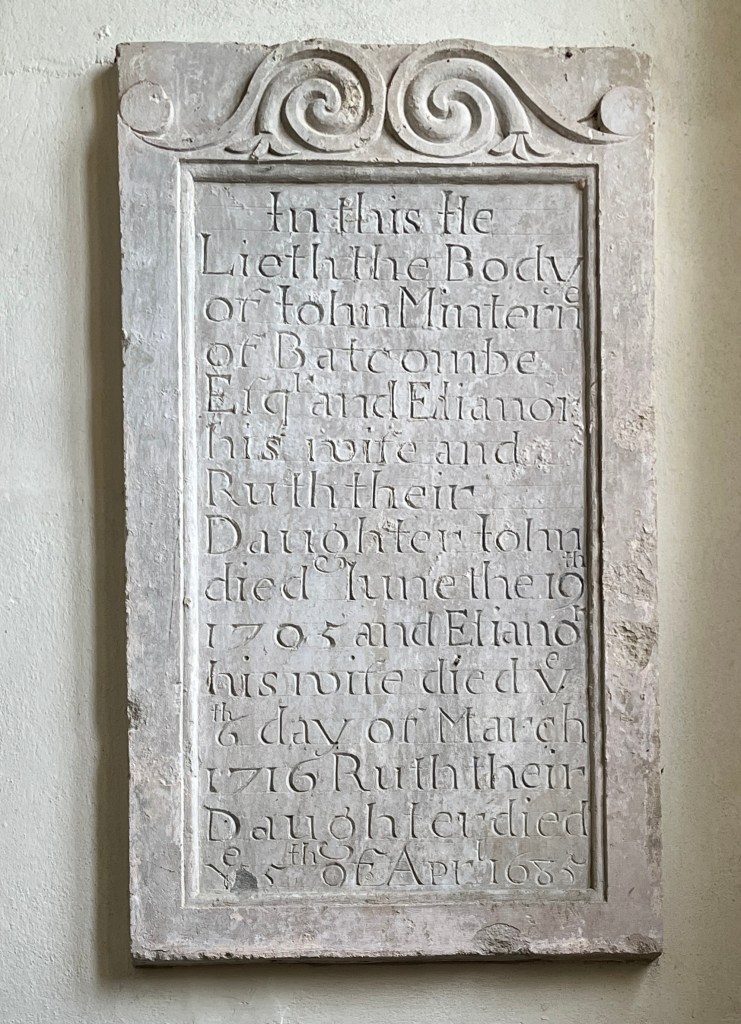 In this Ile
Lieth the Body
of Iohn Mintern
of Batcombe
Esqr and Elianor
his wife and
Ruth their
Daughter Iohn
died Iune the 19th
1705 and Elianor
his wife died ye
6th day of March
1716 Ruth their
Daughter died
ye 5th of Aprl 1685